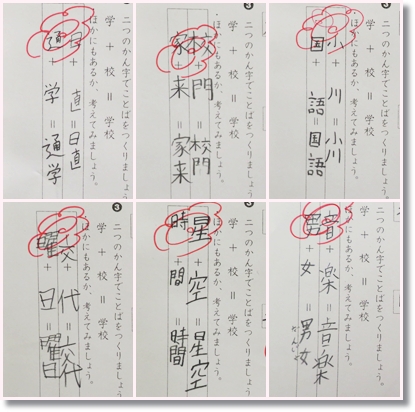 ❸
二つのかん字でことばをつくりましょう
学 + 校 = 学校
ほかにもあるか、考えてみましょう。
日 + 直 = 日直
通 + 学 = 通学
❸
二つのかん字でことばをつくりましょう
学 + 校 = 学校
ほかにもあるか、考えてみましょう。
校 + 門 = 校門
家 + 来 = 家来
二つのかん字でことばをつくりましょう
学 + 校 = 学校
ほかにもあるか、考えてみましょう。
小 + 川 = 小川
国 + 語 = 国語
❸
二つのかん字でことばをつくりましょう
学 + 校 = 学校
ほかにもあるか、考えてみましょう。
交 + 代 = 交代
曜 + 日 = 曜日
二つのかん字でことばをつくりましょう
学 + 校 = 学校
ほかにもあるか、考えてみましょう。
星 + 空 = 星空
時 + 間 = 時間
二つのかん字でことばをつくりましょう
学 + 校 = 学校
ほかにもあるか、考えてみましょう。
音 + 楽 = 音楽
男 + 女 = 男女